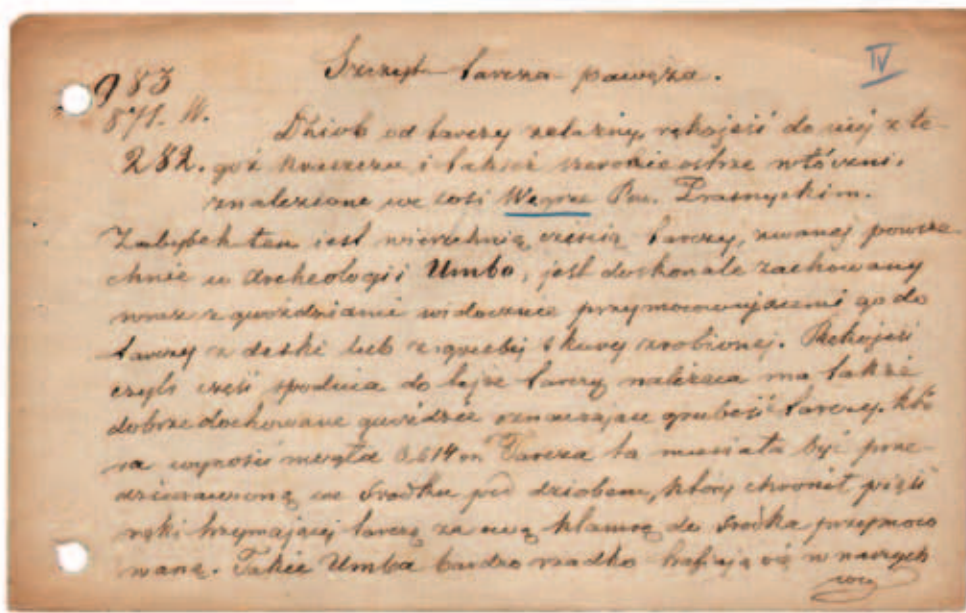 Szczyt tarcza pawęza.
IV
983
571. W.
282.
Dziob od tarczy żelazny, rękojeść do niéj z te-
goż kruszczu i takież szerokie ostrze włóczni,
znalezione we wsi Węgrze Pow. Prasnyckim.
Zabytek ten jest wierzchnią częścią tarczy, zwanej powsze
chnie w Archeologii Umbo, jest doskonale zachowany
wraz z gwoździami widocznie przymocowującemi go do
tarczy z deski lub z grubéj skóry zrobionej. Rękojeść
czyli część spodnia do tejże tarczy należąca ma także
dobrze dochowane gwoździe oznaczające grubość tarczy, któ
ra wynosi 0,014 m Tarcza ta musiała być prze-
dziurawioną we środku pod dziobem, który chronił pięść
ręki trzymającej tarczę za ową klamrę do środka przymoco
waną. Takie Umba bardzo rzadko trafiają się w naszych